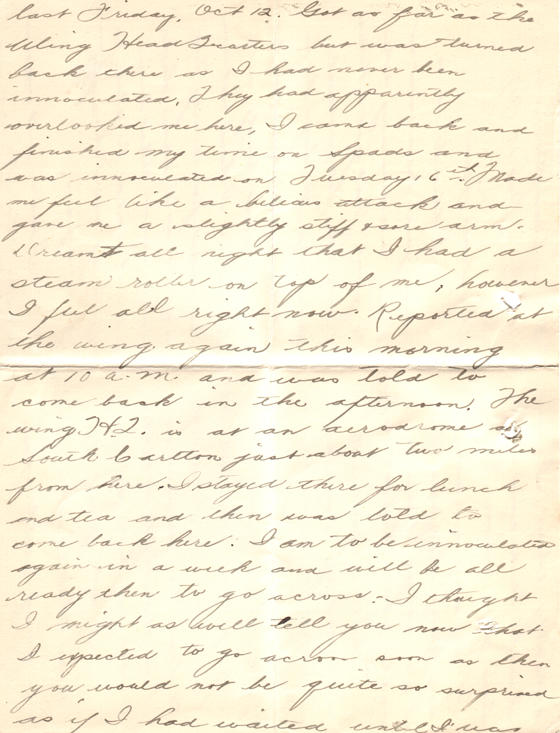 last Friday, Oct 12. Got as far as the
Wing Head Quarters but was turned
back there as I had never been
innoculated. They had apparently
overlooked me here, I came back and
finished my time on Spads and
was innoculated on Tuesday 16th. Made
me feel like a bilious attack and
gave me a slightly stiff & sore arm.
Dreamt all right that I had a
steam roller on top of me, however
I feel all right now. Reported at
the wing again this morning
at 10 a.m. and was told to
come back in the afternoon. The
wing H.Q. is at an aerodrome at
South Carlton just about two miles
from here. I stayed there for lunch
and tea and then was told to
come back here. I am to be innoculated
again in a week and will be all
ready then to go across. I thought
I might as well tell you now that
I expected to go across soon as then
you would not be quite so surprised
as if I had waited until I was